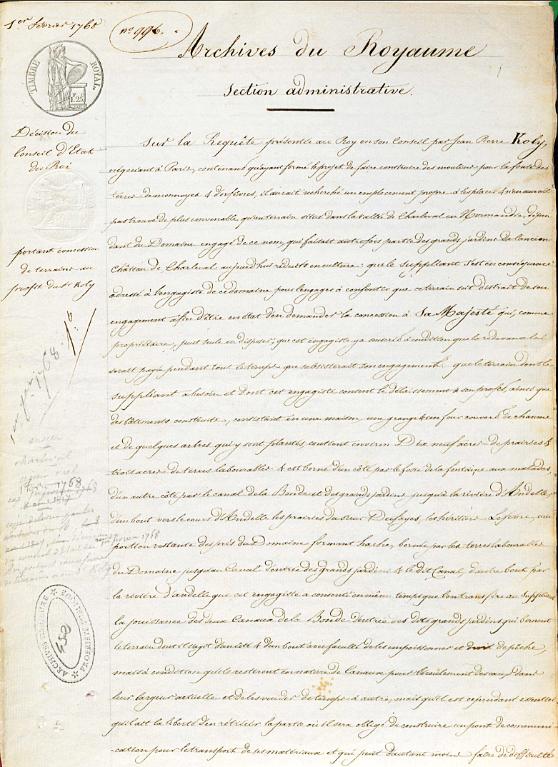 1er février 1768
n° 996.
Archives du Royaume
Section administrative.
TIMBRE ROYAL
Décision du
Conseil d'Etat
du Roi
portant concession
de terrains au
profit du Sr Koly
Sur la Requête présentée au Roy en son Conseil par Jean Pierre Koly,
négociant à Paris, contenant qu'ayant formé le projet de faire construire des moulins pour la fonte des
terres de monnoyes & d'orfèvres, il aurait recherché un emplacement propre à les placer & n'en aurait
pas trouvé de plus convenable qu'un terrain situé dans la vallée de Charleval en Normandie, dépen
dant du Domaine engagé de ce nom, qui faisait autrefois partie des grands jardins de l'ancien
Château de Charleval aujourd'hui réduits en culture; que le Suppliant s'est en conséquence
adressé à l'engagiste de ce domaine pour l'engager à consentir que ce terrain soit distrait de son
engagement afin d'être en état d'en demander la concession à Sa Majesté qui, comme
propriétaire, peut seule en disposer; que cet engagiste y a consenti à condition que la redevance lui
serait payée pendant tout le temps que subsisterait son engagement; que le terrain dont le
suppliant a besoin et dont cet engagiste consent le délaissement à son profit, ainsi que
des bâtiments construits, consistant en une maison, une grange & un four couverts de chaume
et de quelques arbres qui y sont plantés, contient environ Dix neuf acres de prairies &
trois acres de terres labourables & est borné d'un côté par le fossé de la fontaine aux malades,
d'un autre côté par le canal de la Bonde et des grands jardins jusqu'à la rivière d'Andelle
d'un bout vers le cours d'Andelle les prairies du sieur
portion restante des prés du Domaine formant hache, bornée par les terres labourables
du Domaine jusqu'au Canal d'entrée des grands jardins & le dit Canal, d'autre bout par
la rivière d'Andelle que cet engagiste a consenti en même temps que transférer au Suppliant
la jouissance des deux Canaux de la Bonde d'entrée des dits grands jardins qui bornent
le terrain dont il s'agit d'un côté & d'un bout avec faculté de les empoissonner et droit de pêche
mais à condition qu'ils resteront en nature de Canaux pour l'écoulement des eaux, dans
leur largeur actuelle et de les vuider de temps à autre, mais qu'il est cependant essentiel
qu'il ait la liberté d'en rétrécir la partie où il sera obligé de construire un pont de communi
-cation pour le transport de ses matériaux et qui peut d'autant moins faire de difficulté